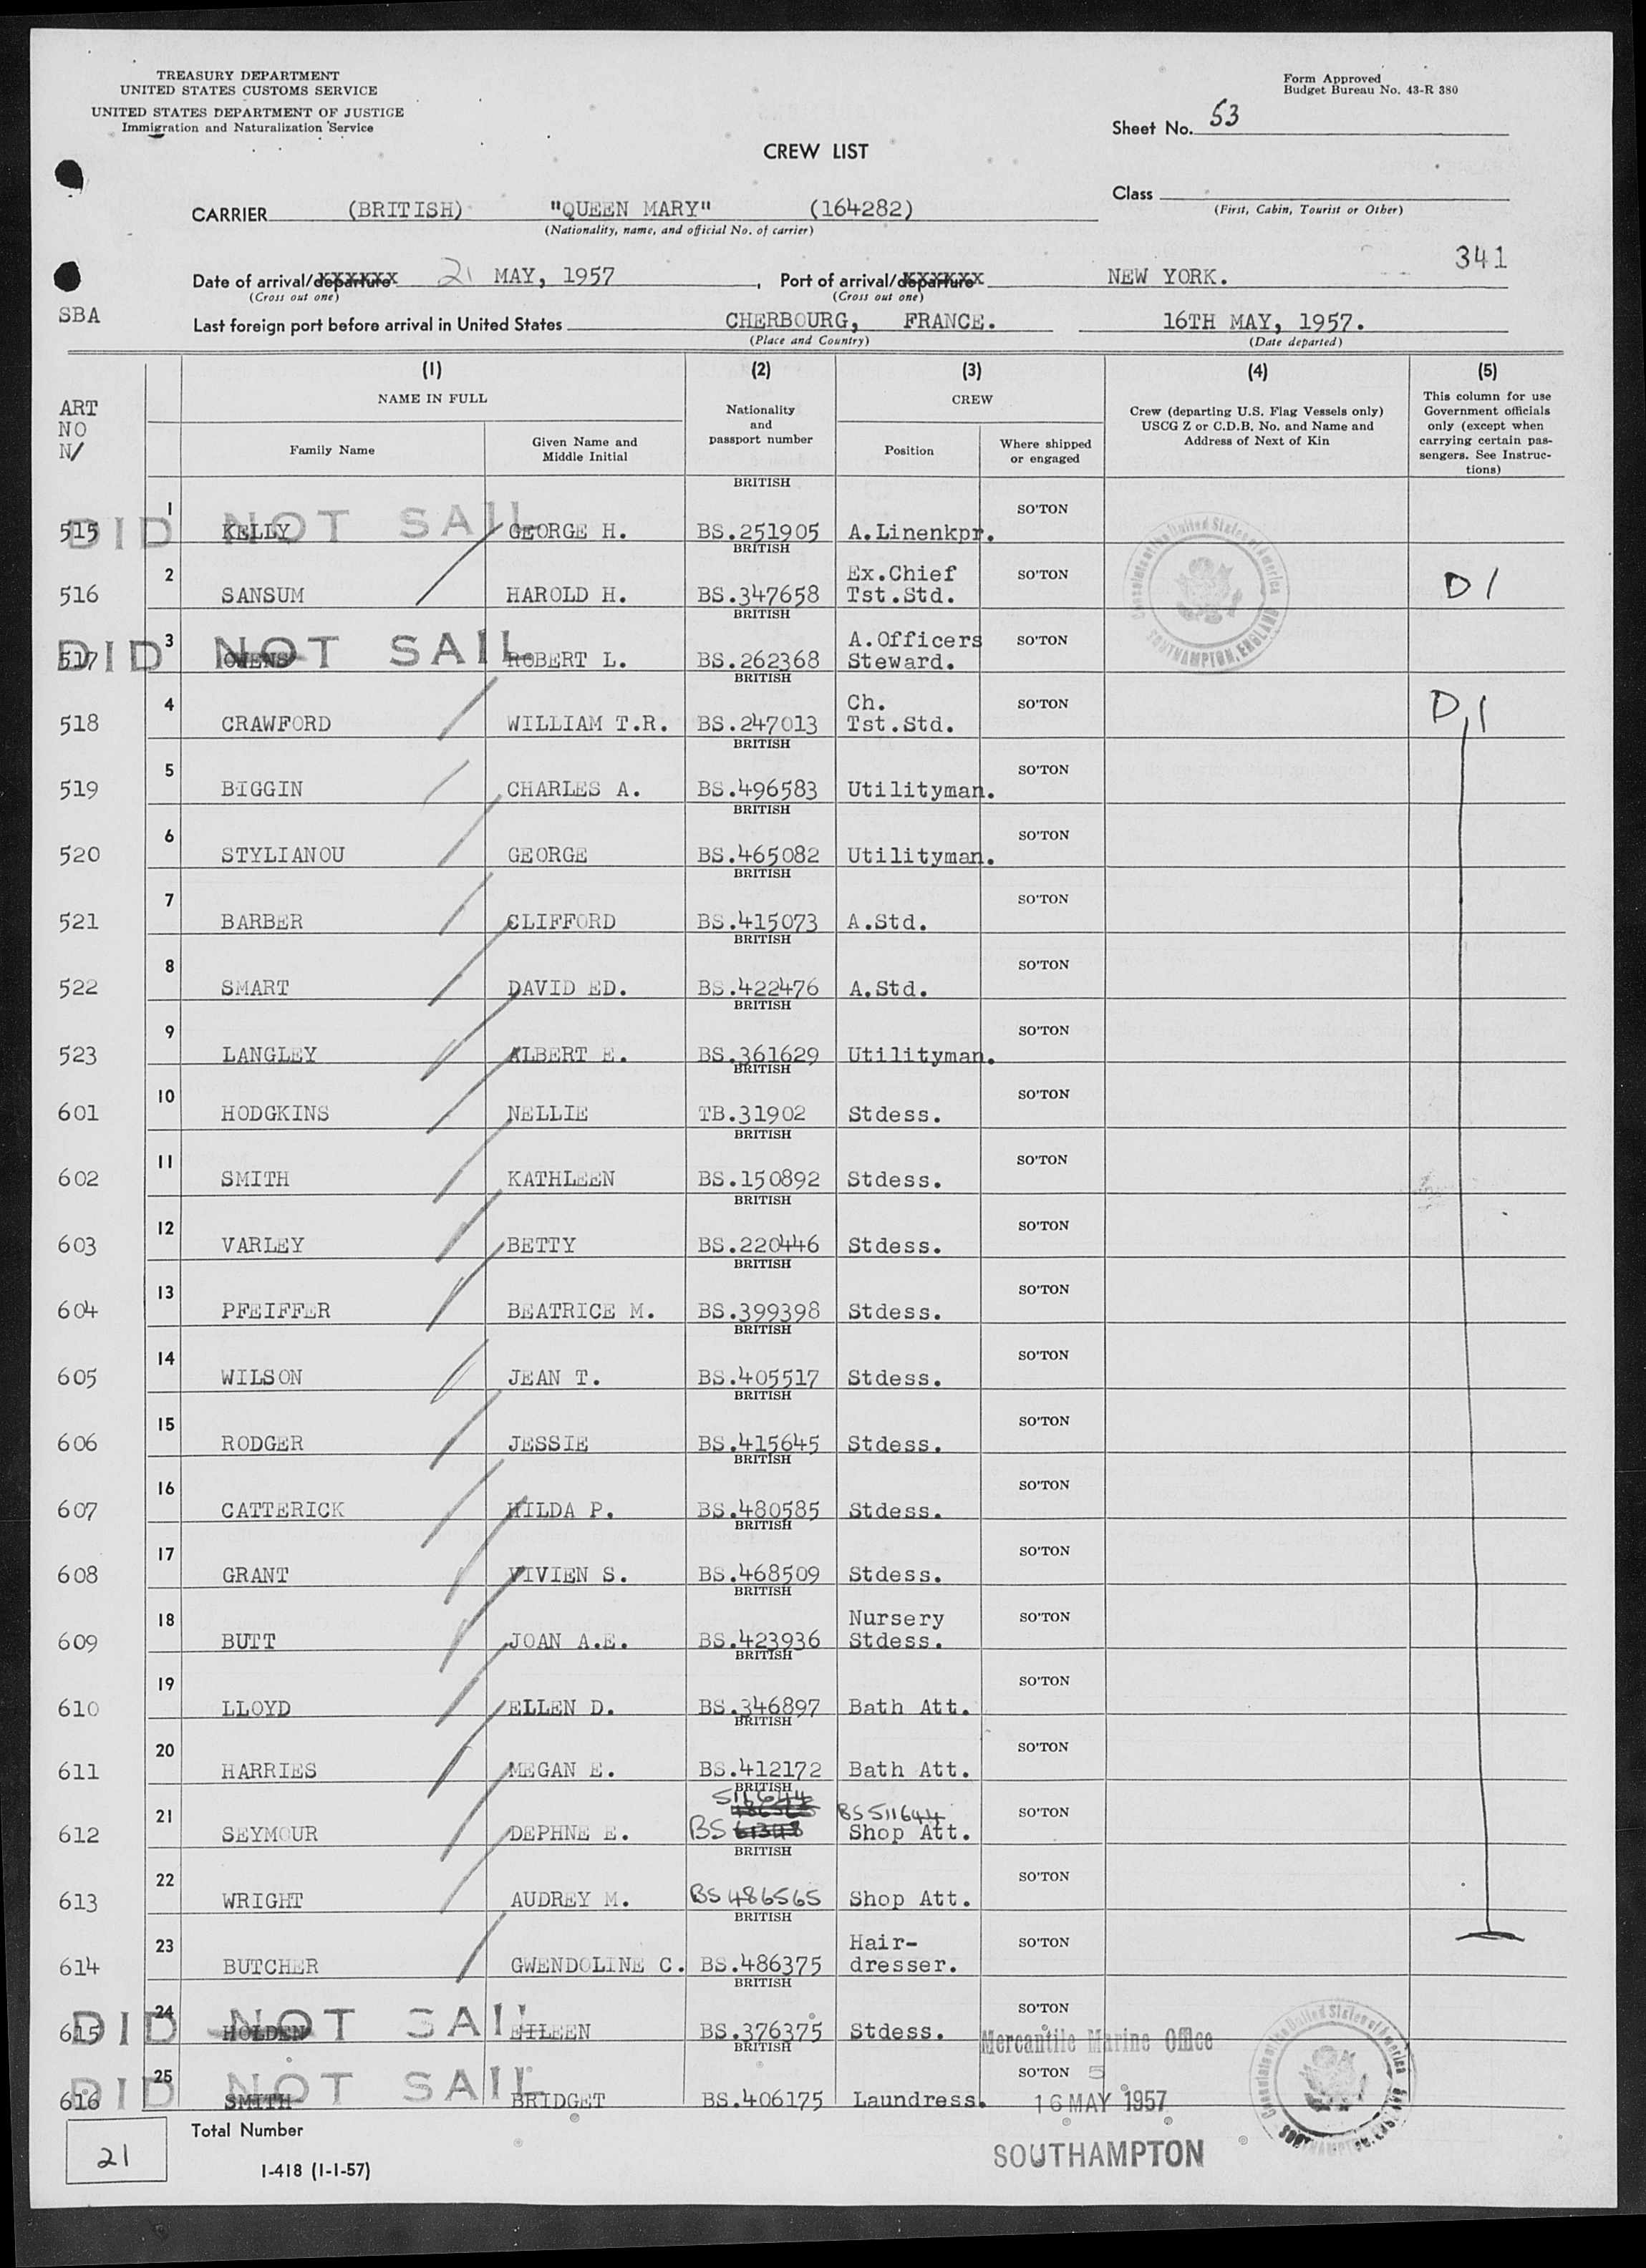 TREASURY DEPARTMENT
UNITED STATES CUSTOMS SERVICE
UNITED STATES DEPARTMENT OF JUSTICE
Immigration and Naturalization Service
Form Approved
Budget Bureau No. 43-R 380
Sheet No. 53
CREW LIST
Class
(First, Cabin, Tourist or Other)
CARRIER (BRITISH) "QUEEN MARY" (164282)
(Nationality, name, and official No. of carrier)
341
Date of arrival/departure 21 MAY, 1957, Port of arrival/departure NEW YORK.
(Cross out one) (Cross out one)
SBA
Last foreign port before arrival in United States CHERBOURG, FRANCE. 16TH MAY, 1957.
(Place and Country) (Date departed)
ART
NO
N/
(1) (2) (3) (4) (5)
NAME IN FULL
Family Name
Given Name and
Middle Initial
Nationality
and
passport number
CREW
Position
Where shipped
or engaged
Crew (departing U.S. Flag Vessels only)
USCG Z or C.D.B. No. and Name and
Address of Next of Kin
This column for use
Government officials
only (except when
carrying certain pas-
sengers. See Instruc-
tions)
BRITISH
DID NOT SAIL
515 1 KELLY GEORGE H. BS.251905 A.Linenkpr. SO'TON
BRITISH
516 2 SANSUM HAROLD H. BS.347658 Ex.Chief Tst.Std. SO'TON D1
BRITISH
DID NOT SAIL
517 3 OWENS ROBERT L. BS.262368 A.Officers Steward. SO'TON
BRITISH
518 4 CRAWFORD WILLIAM T.R. BS.247013 Ch. Tst.Std. SO'TON D,1
BRITISH
519 5 BIGGIN CHARLES A. BS.496583 Utilityman. SO'TON
BRITISH
520 6 STYLIANOU GEORGE BS.465082 Utilityman. SO'TON
BRITISH
521 7 BARBER CLIFFORD BS.415073 A.Std. SO'TON
BRITISH
522 8 SMART DAVID ED. BS.422476 A.Std. SO'TON
BRITISH
523 9 LANGLEY ALBERT E. BS.361629 Utilityman. SO'TON
BRITISH
601 10 HODGKINS NELLIE TB.31902 Stdess. SO'TON
BRITISH
602 11 SMITH KATHLEEN BS.150892 Stdess. SO'TON
BRITISH
603 12 VARLEY BETTY BS.220446 Stdess. SO'TON
BRITISH
604 13 PFEIFFER BEATRICE M. BS.399398 Stdess. SO'TON
BRITISH
605 14 WILSON JEAN T. BS.405517 Stdess. SO'TON
BRITISH
606 15 RODGER JESSIE BS.415645 Stdess. SO'TON
BRITISH
607 16 CATTERICK HILDA P. BS.480585 Stdess. SO'TON
BRITISH
608 17 GRANT VIVIEN S. BS.468509 Stdess. SO'TON
BRITISH
609 18 BUTT JOAN A.E. BS.423936 Nursery Stdess. SO'TON
BRITISH
610 19 LLOYD ELLEN D. BS.346897 Bath Att. SO'TON
BRITISH
611 20 HARRIES MEGAN E. BS.412172 Bath Att. SO'TON
BRITISH
511644
612 21 SEYMOUR DEPHNE E. BS BS 511644 Shop Att. SO'TON
BRITISH
613 22 WRIGHT AUDREY M. BS 486565 Shop Att. SO'TON
BRITISH
614 23 BUTCHER GWENDOLINE C. BS.486375 Hair- dresser. SO'TON
BRITISH
DID NOT SAIL
615 24 HOLDEN EILEEN BS.376375 Stdess. SO'TON
BRITISH
DID NOT SAIL
616 25 SMITH BRIDGET BS.406175 Laundress. SO'TON
Consulate of the United States of America
SOUTHAMPTON, ENGLAND
Mercantile Marine Office
5
16 MAY 1957
SOUTHAMPTON
Consulate of the United States of America
SOUTHAMPTON, ENGLAND
21 Total Number
I-418 (1-1-57)